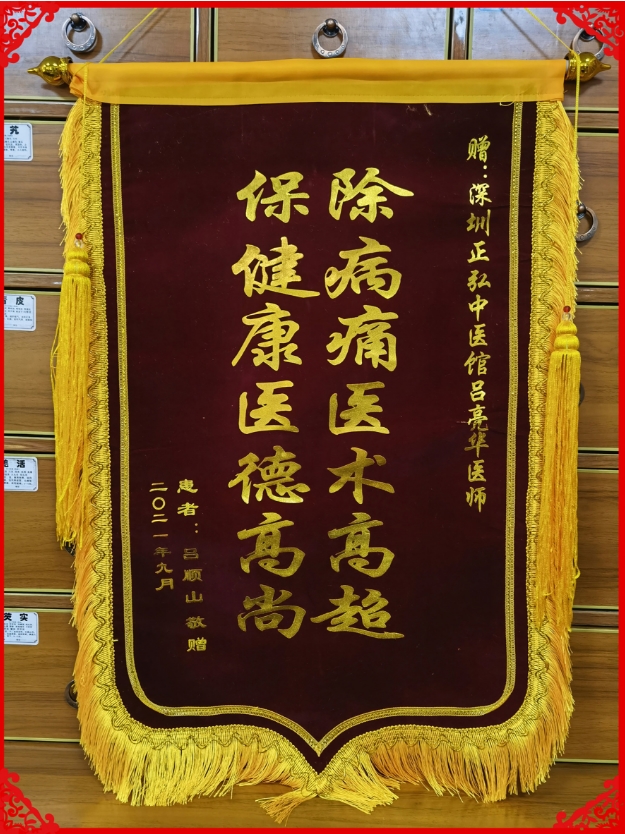 赠：深圳正弘中医馆吕亮华医师
除病痛医术高超
保健康医德高尚
患者：吕顺山敬赠
二〇二一年九月
芡实